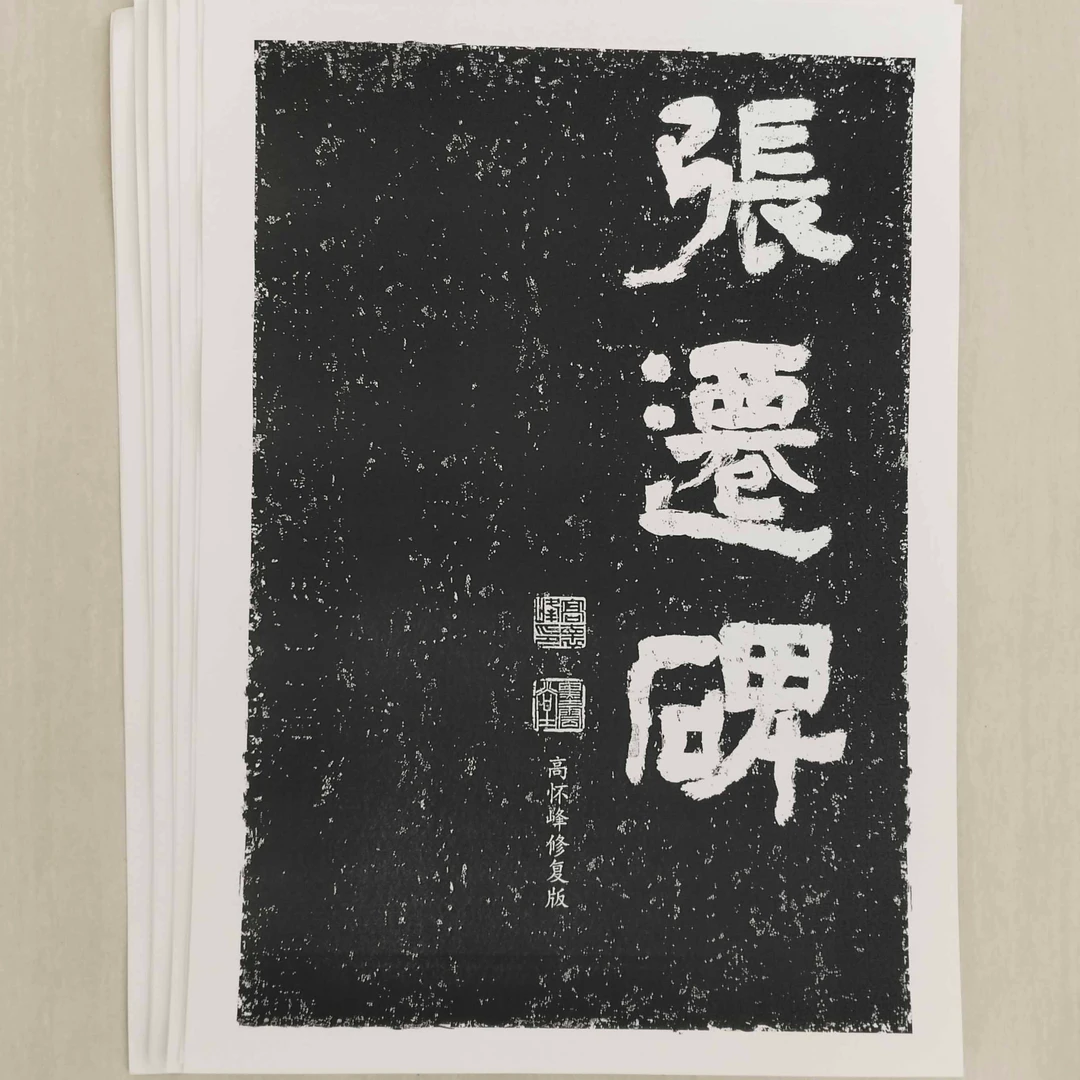 張遷碑
高怀峰修复版